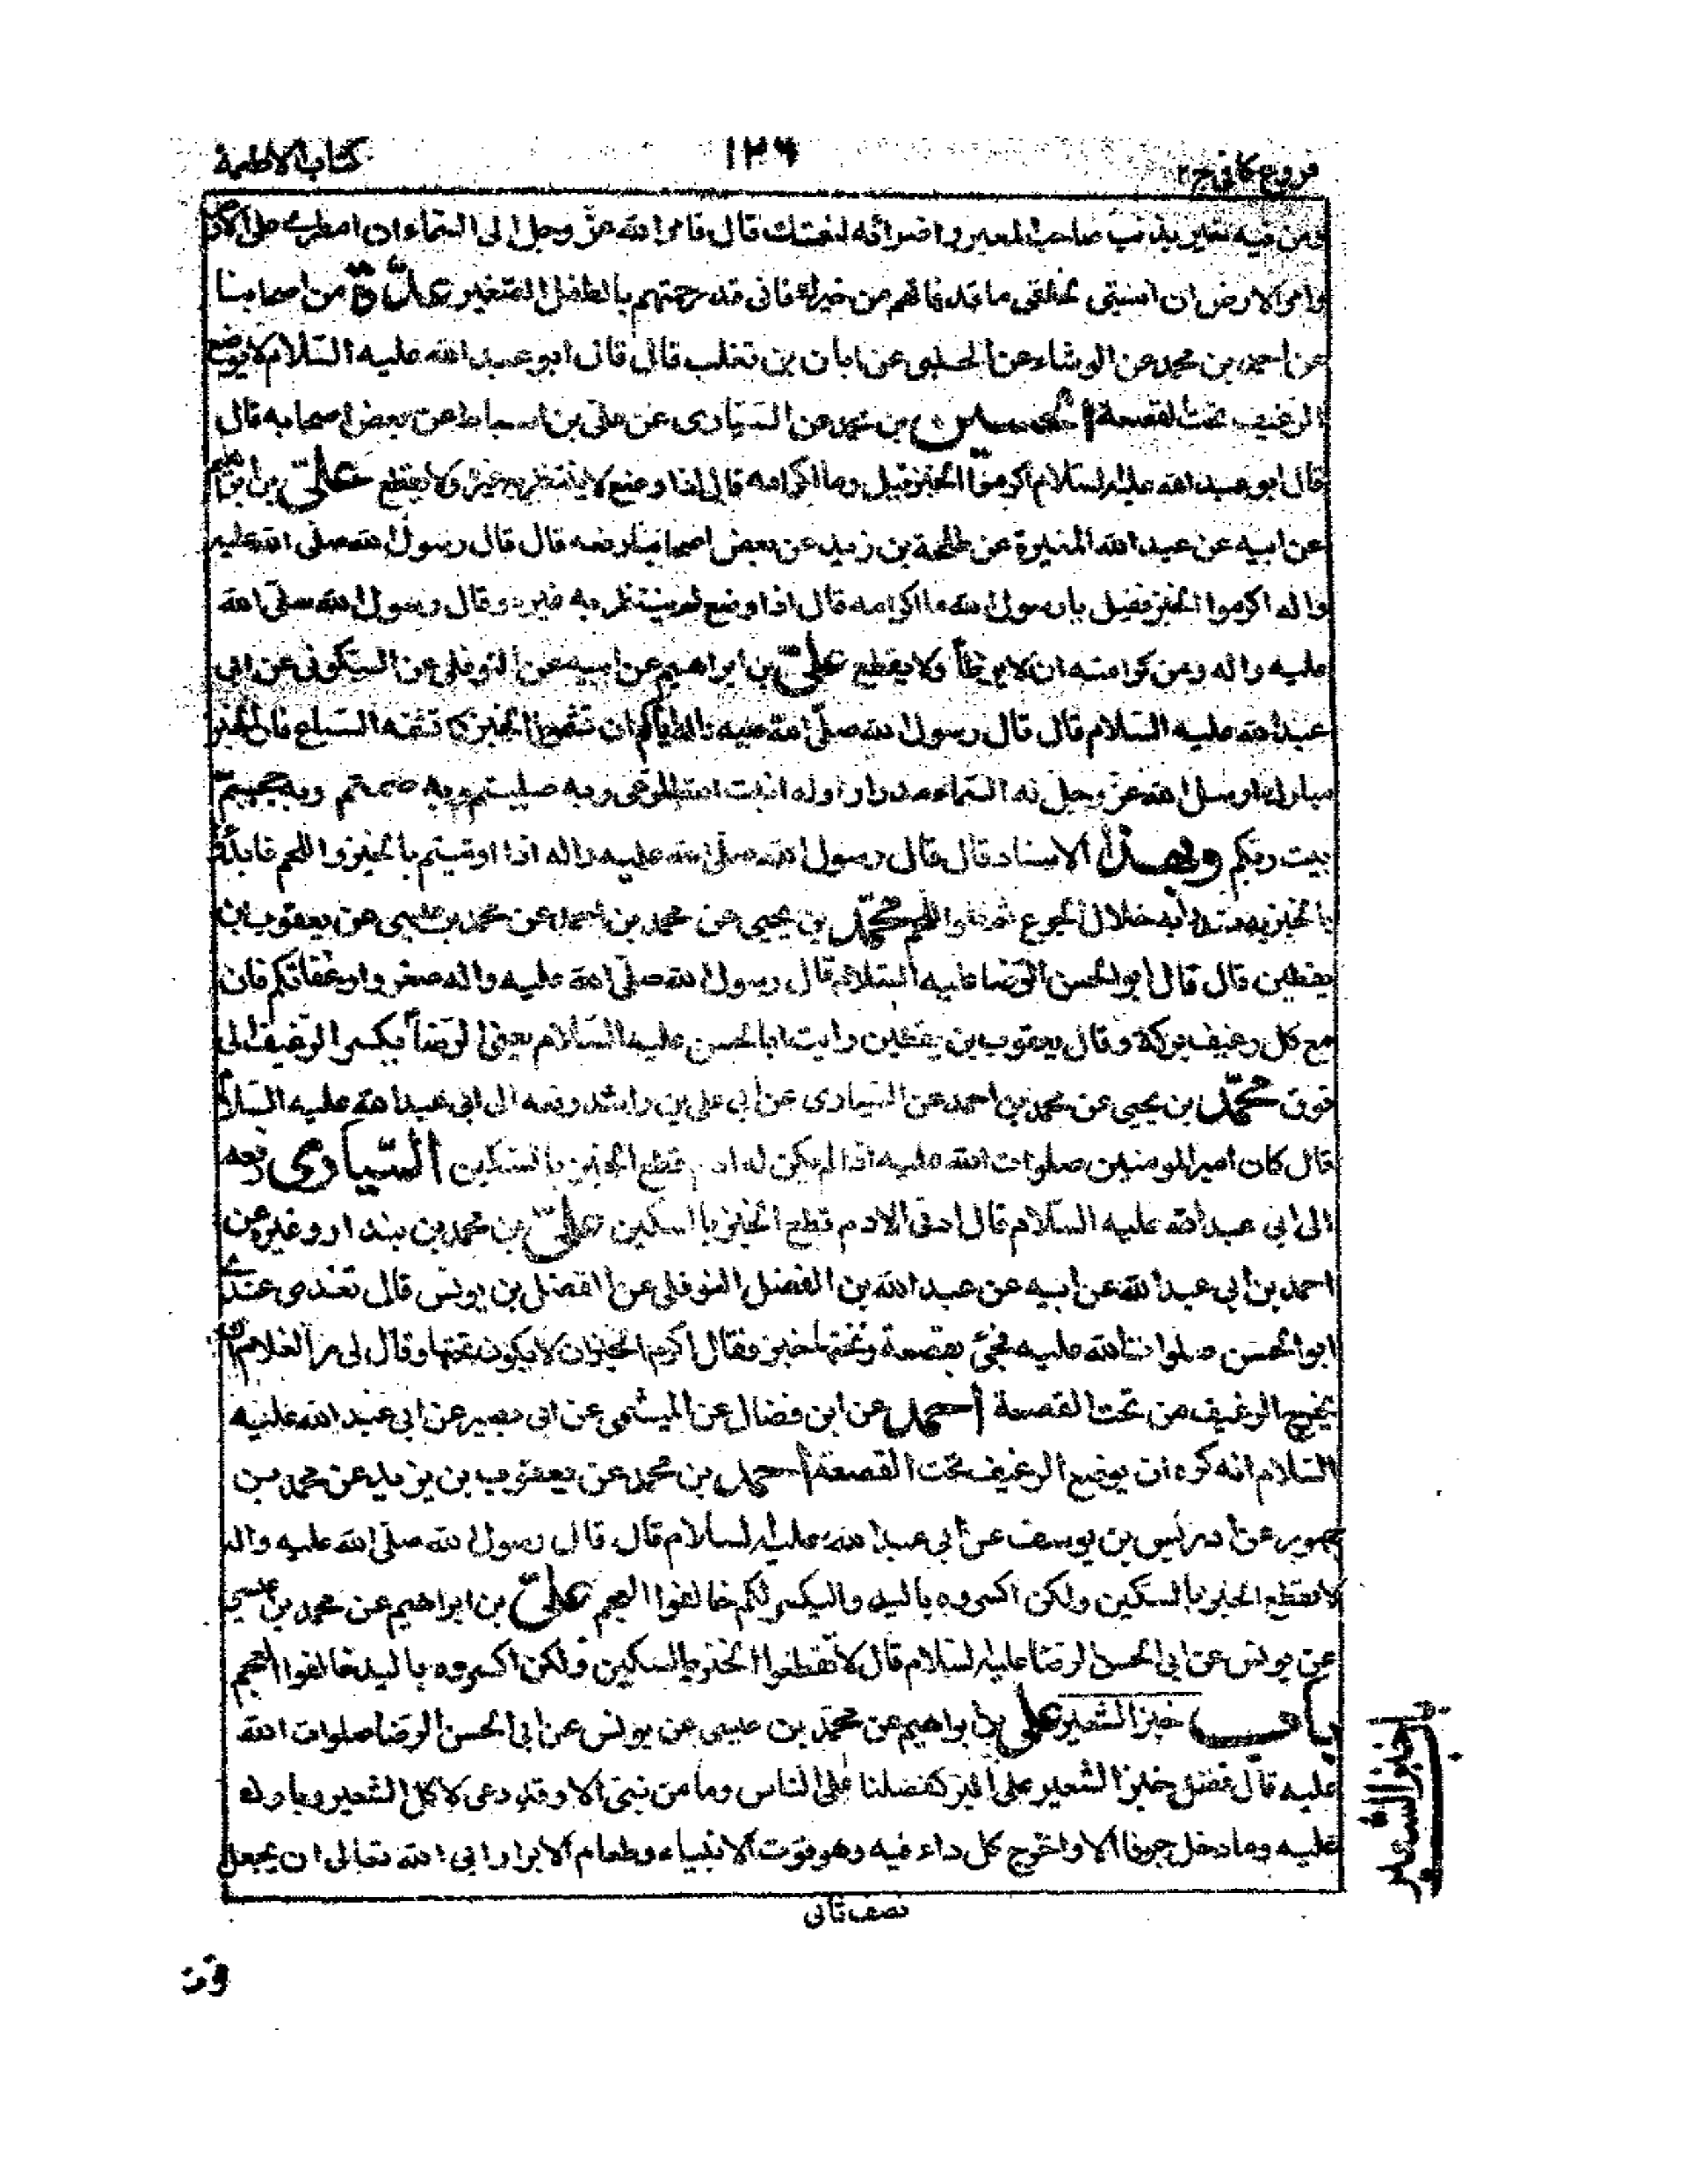 فروع كافي ج٢
١٢٦
كتاب الاطعمة
فمن فيه خير بذنب صاحب المعبر واضرابه لنعمتك قال فامر الله عزّ وجل الى السّماء ان امطرى على الارض
وامر الارض ان انبتى لخلقى ما قد فاتهم من خيرك فانى قد رحمتهم بالطفل الصّغير عدّة من اصحابنا
عن احمد بن محمد عن الوشاء عن الحلبى عن ابان بن تغلب قال قال ابو عبد الله عليه السّلام لا يوضع
الرغيف تحت القصعة الحسين بن محمد عن السّيّارى عن على بن اسباط عن بعض اصحابه قال
قال ابو عبد الله عليه السّلام اكرموا الخبز قيل وما اكرامه قال اذا وضع لا ينتظر به غيره ولا يقطع علىّ بن ابراهيم
عن ابيه عن عبد الله المغيرة عن طلحة بن زيد عن بعض اصحابنا رفعه قال قال رسول الله صلّى الله عليه
واله اكرموا الخبز فقيل يا رسول الله ما اكرامه قال اذا وضع لم ينتظر به غيره وقال رسول الله صلّى الله
عليه واله ومن كرامته ان لا يوطأ ولا يقطع علىّ بن ابراهيم عن ابيه عن النوفلى عن السكونى عن ابى
عبد الله عليه السّلام قال قال رسول الله صلّى الله عليه واله اياكم ان تشموا الخبز كما تشمه السّباع فان الخبز
مبارك ارسل الله عزّ وجل له السّماء مدرارا وله انبت الله المرعى وبه صليتم وبه صمتم وبه حججتم
بيت ربكم وبهذا الاسناد قال قال رسول الله صلّى الله عليه واله اذا اوتيتم بالخبز واللحم فابدؤا
بالخبز فسدوا به خلال الجوع ثم كلوا اللحم محمّد بن يحيى عن محمد بن احمد عن محمد بن عيسى عن يعقوب بن
يقطين قال قال ابو الحسن الرّضا عليه السّلام قال رسول الله صلّى الله عليه واله صغروا رغفانكم فان
مع كل رغيف بركة وقال يعقوب بن يقطين رايت ابا الحسن عليه السّلام يعنى الرّضا يكسر الرّغيف الى
فوق محمّد بن يحيى عن محمد بن احمد عن السّيارى عن ابى على بن راشد رفعه الى ابى عبد الله عليه السّلام
قال كان امير المومنين صلوات الله عليه اذا لم يكن له ادم قطع الخبز بالسّكين السّيارى رفعه
الى ابى عبد الله عليه السّلام قال ادنى الادم قطع الخبز بالسكين علىّ بن محمد بن بندار وغيره عن
احمد بن ابى عبد الله عن ابيه عن عبد الله بن الفضل النوفلى عن الفضل بن يونس قال تغدى عندى
ابو الحسن صلوات الله عليه فجئ بقصعة وتحتها خبز فقال اكرموا الخبز ان لا يكون تحتها وقال لى مر الغلام ان
يخرج الرغيف من تحت القصعة احمد عن ابن فضال عن الميثمى عن ابى بصير عن ابى عبد الله عليه
السّلام انه كره ان يوضع الرغيف تحت القصعة احمد بن محمد عن يعقوب بن يزيد عن محمد بن
جمهور عن ادريس بن يوسف عن ابى عبد الله عليه السلام قال قال رسول الله صلّى الله عليه واله
لا تقطع الخبز بالسكين ولكن اكسروه باليد واليكسر لكم خالفوا العجم علىّ بن ابراهيم عن محمد بن عيسى
عن يونس عن ابى الحسن الرضا عليه السّلام قال لا تقطعوا الخبز بالسكين ولكن اكسروه باليد خالفوا العجم
باب خبز الشعير على بن ابراهيم عن محمّد بن عيسى عن يونس عن ابى الحسن الرّضا صلوات الله
عليه قال فضل خبز الشعير على البر كفضلنا على الناس وما من نبى الا وقد دعى لاكل الشعير وبارك
عليه وما دخل جوفا الا واخرج كل داء فيه وهو قوت الانبياء وطعام الابرار ابى الله تعالى ان يجعل
خبز الشعير
نصف ثانى
قوت